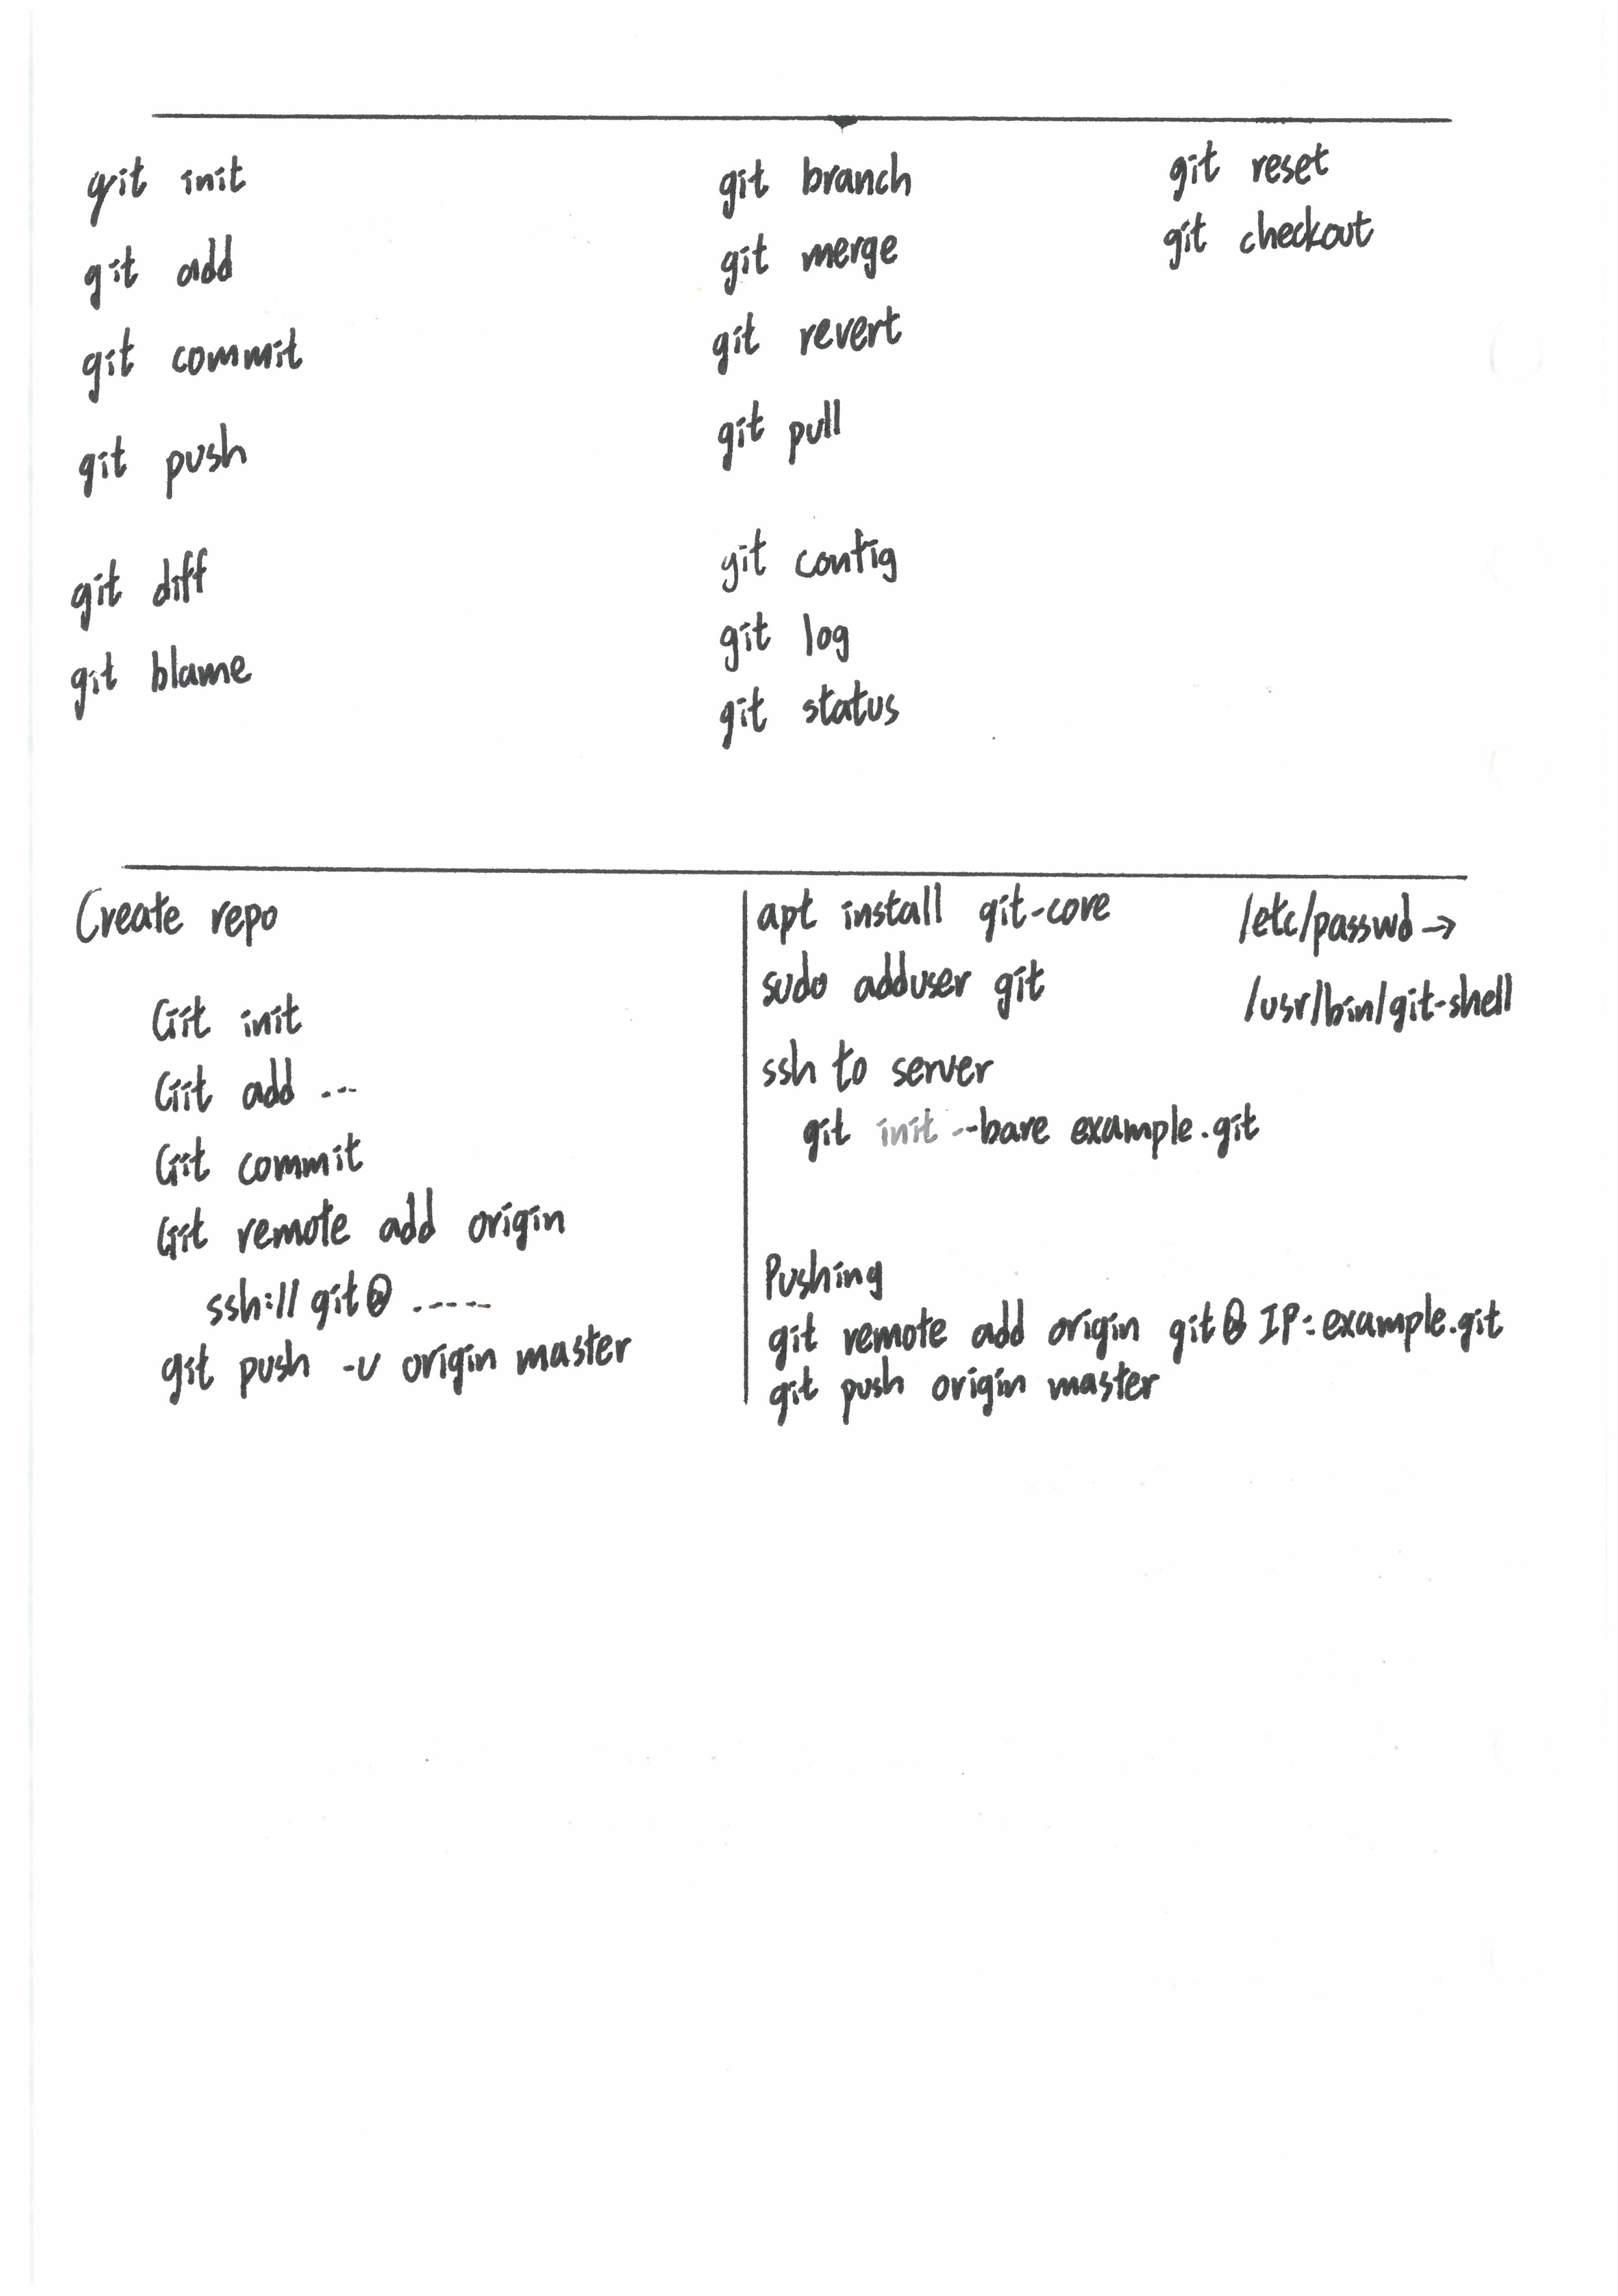 git init
git add
git commit
git push
git diff
git blame
git branch
git merge
git revert
git pull
git config
git log
git status
git reset
git checkout
Create repo
Git init
Git add ---
Git commit
Git remote add origin
ssh:// git@ .----
git push -u origin master
apt install git-core
sudo adduser git
/etc/passwd →
/usr/bin/git-shell
ssh to server
git init --bare example.git
Pushing
git remote add origin git@IP:example.git
git push origin master